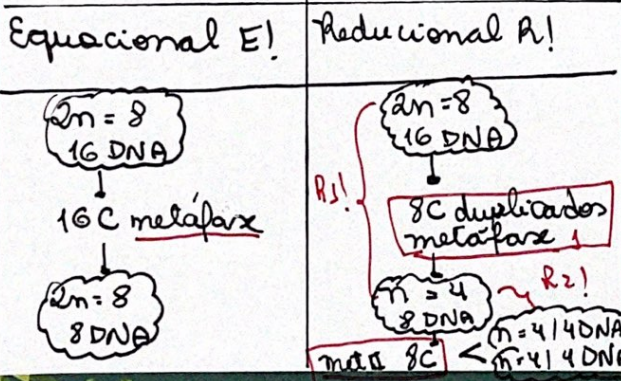 Equacional E!
2n = 8
16 DNA
16C metáfase
2n = 8
8 DNA
Reducional R!
2n = 8
16 DNA
R1!
8C duplicados
metáfase 1
n = 4
8 DNA
R2!
metaII 8C <
n = 4 | 4 DNA
n = 4 | 4 DNA